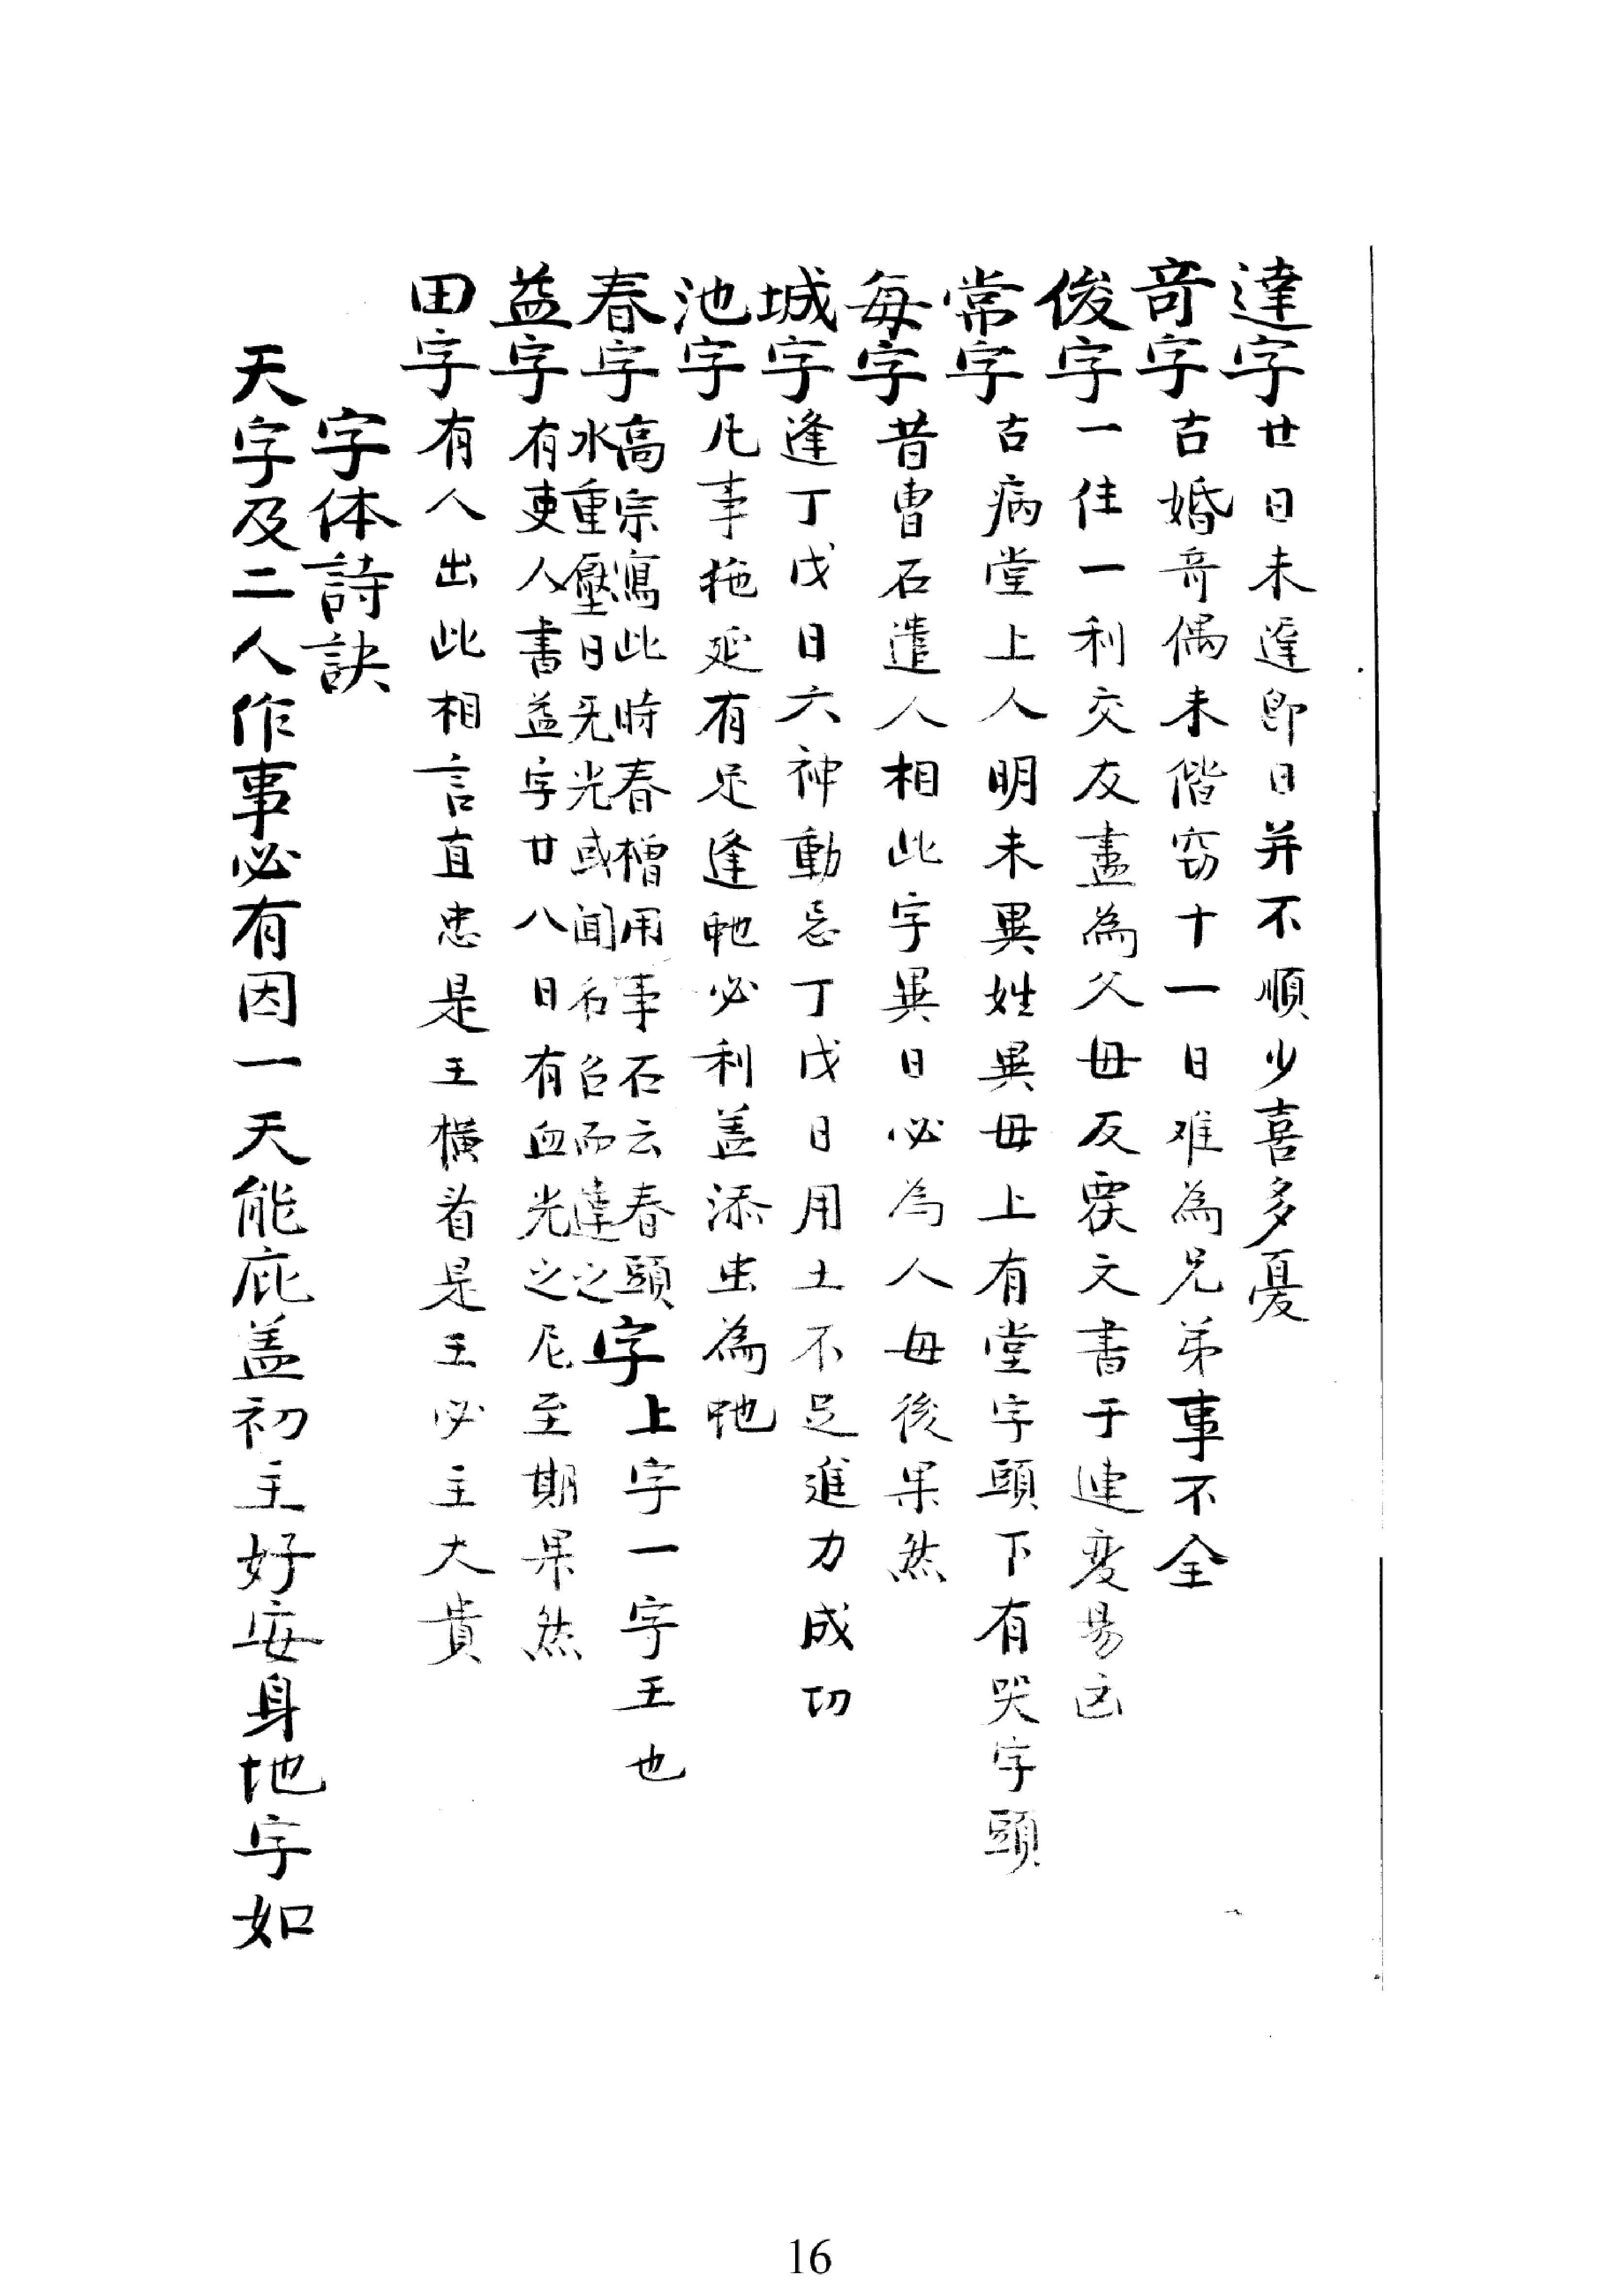 達字廿日未達即日并不順少喜多憂
竒字占婚竒偶未偕窃十一日难為兄弟事不全
俊字一住一利交友盡為父母反覆文書于連变易凶
常字占病堂上人明未異姓異母上有堂字頭下有哭字頭
每字昔曹石遣人相此字異日必为人母後果然
城字逢丁戊日六神動忌丁戊日用土不足進力成功
池字凡事拖延有足逢虵必利盖添虫為虵
春字高宗寫此時春檜用事石云春頭
水重壓日旡光或闻和召而達之
字上字一字王也
益字有吏人書益字廿八日有血光之厄至期果然
田字有人出此相言直忠是王横看是王必主大貴
字体詩訣
天字及二人作事必有因一天能庇盖初主好安身地字如
16